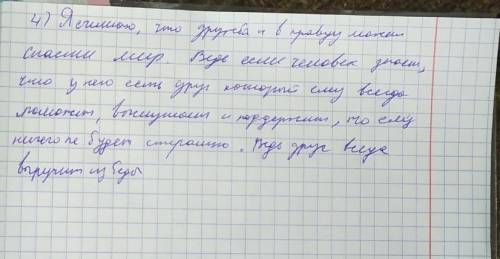 4) Я считаю, что дружба и в правду может
спасти мир. Ведь если человек знает,
что у него есть друг который ему всегда
поможет, выслушает и поддержит, то ему
ничего не будет страшно. Ведь друг всегда
выручит из беды